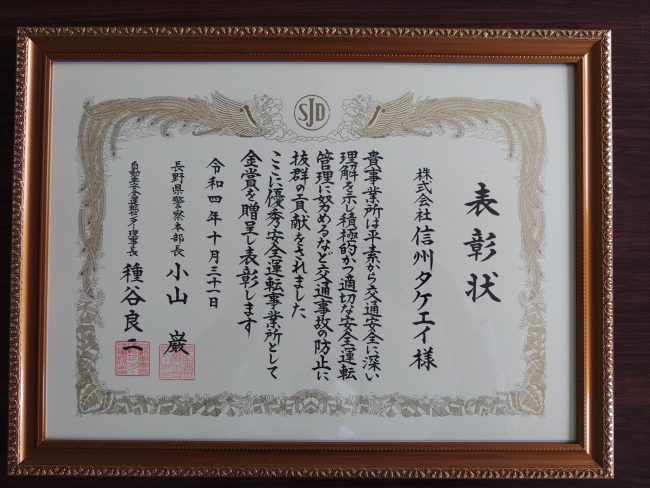 SJD
表彰状
株式会社 信州タケエイ 様
貴事業所は平素から交通安全に深い
理解を示し積極的かつ適切な安全運転
管理に努めるなど交通事故の防止に
抜群の貢献をされました
ここに優秀安全運転事業所として
金賞を贈呈し表彰します
令和四年十月三十一日
長野県警察本部長 小山 巌
自動車安全運転センター理事長 種谷良二